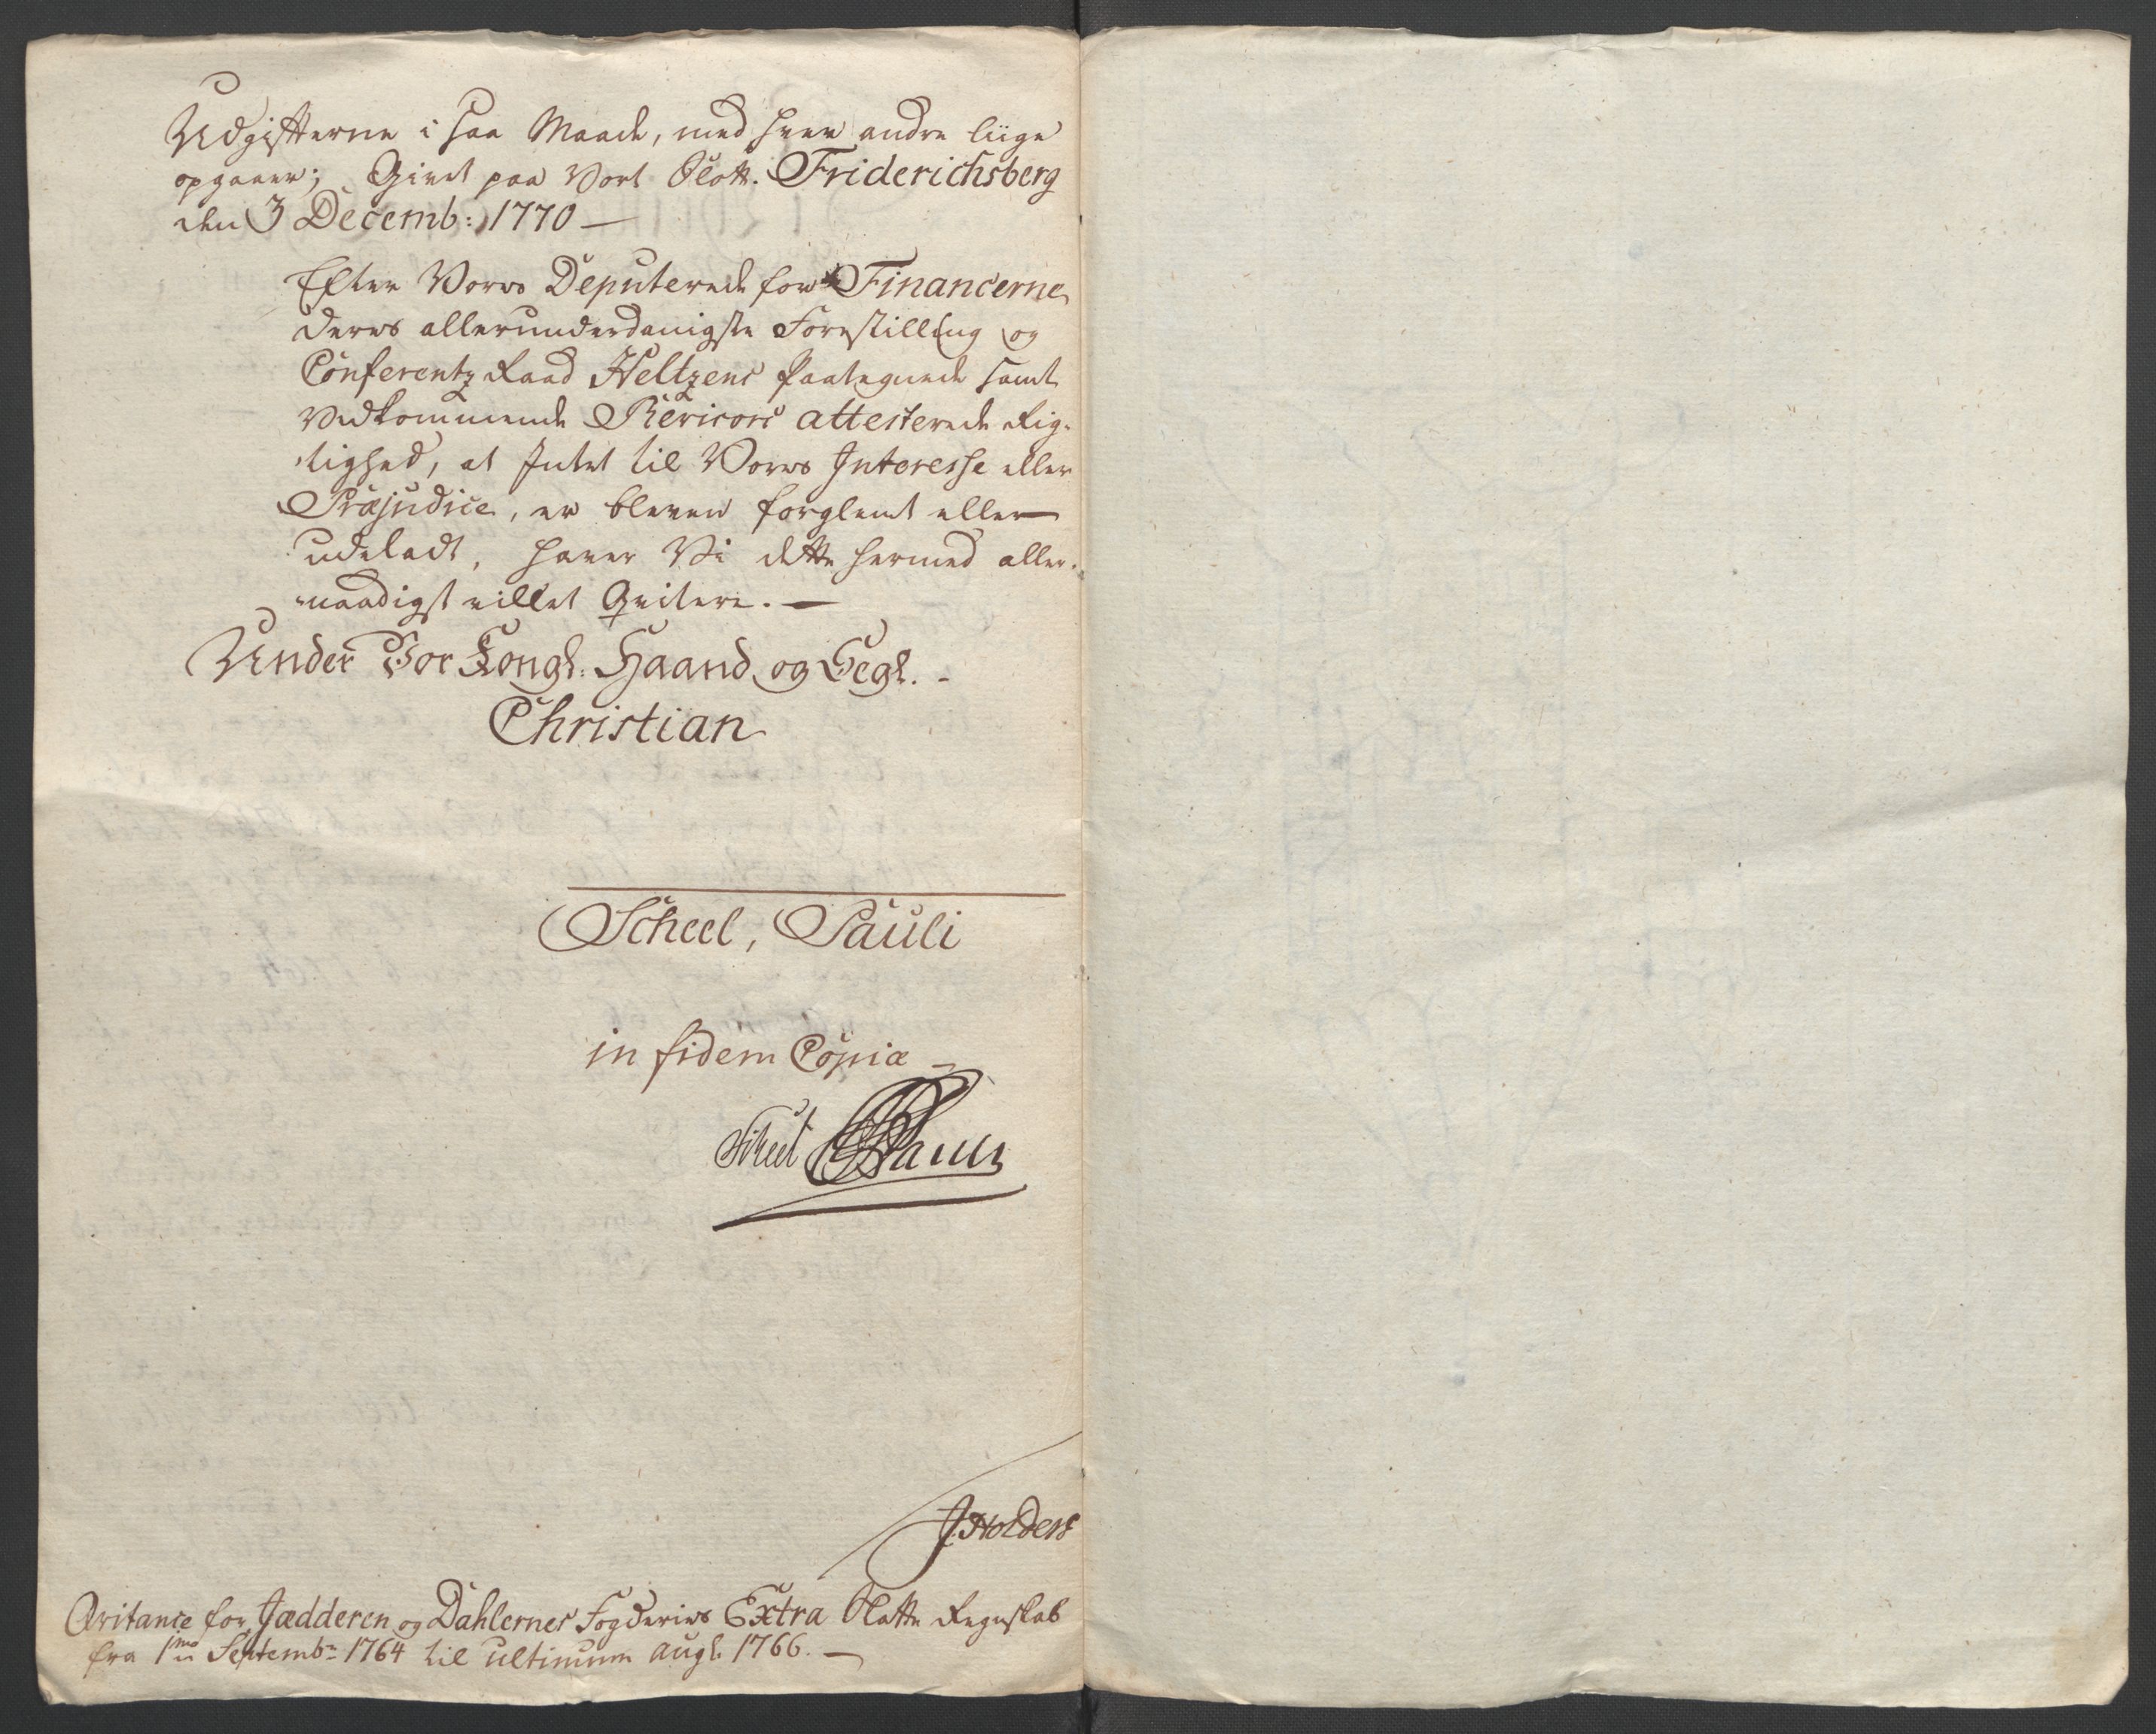 Udgifterne i saa Maade, med hver andre liige
opgaaer; Givet paa Vort Slott. Friderichsberg
den 3 Decemb: 1770 —
Efter Vores Deputerede for Financerne
deres allerunderdanigste Forestilling og
Conferentz Raad Heltzens Paategnede samt
Vedkommende Revisors attesterede Rig-
tighed, at Intet til Vores Interesse eller
Præjudice, er bleven forglemt eller
udeladt, haver Vi dette hermed aller-
naadigst villet Qvitere. —
Under Vor Kongl: Haand og Segl. -
Christian
Scheel, Pauli
in fidem Copiæ
Scheel Pauli
J. Holders
Qvitance for Jædderen og Dahlernes Fogderies Extra Skatte Regnskab
fra 1mo Septembr 1764 til ultimum Aug. 1766. —